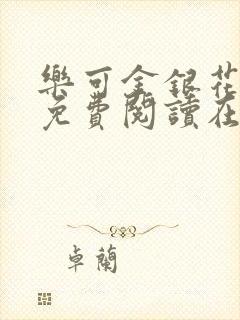 樂可金銀花
免費閱讀在
卓蘭